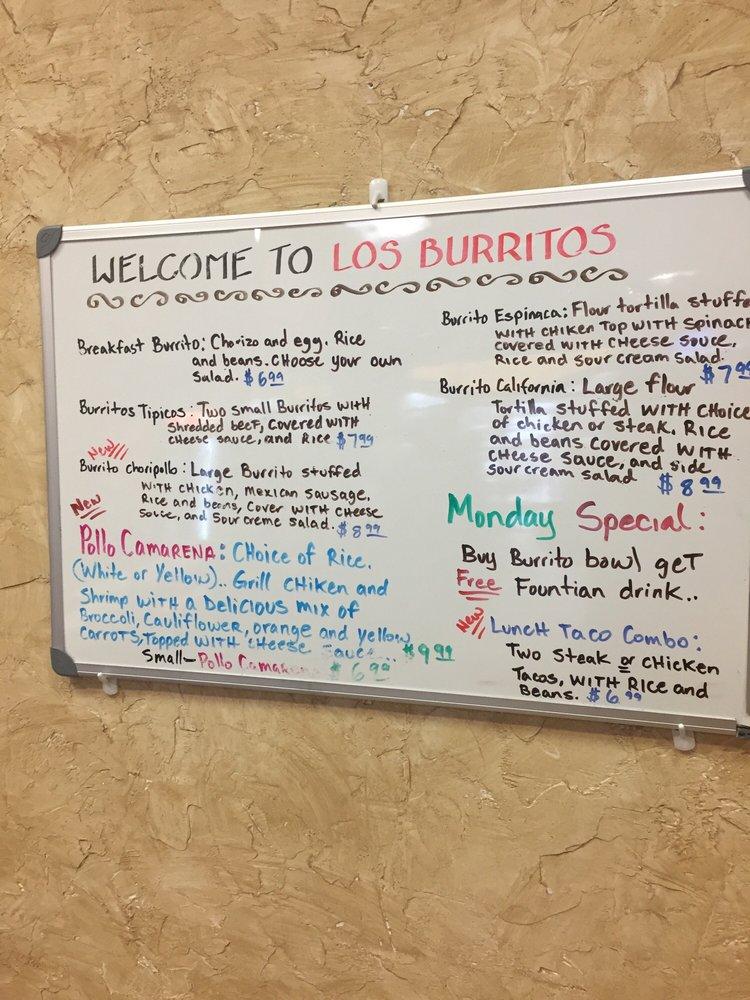 WELCOME TO LOS BURRITOS
Breakfast Burrito: Chorizo and egg. Rice
and beans. CHoose your own
Salad. $6.99
Burritos Tipicos: Two small Burritos WITH
Shredded beef, Covered WITH
cheese sauce, and Rice $7.99
New!!!
Burrito choripollo: Large Burrito stuffed
WITH CHicken, Mexican Sausage,
Rice and beans, Cover WITH CHeese
Souce, and Sour creme Salad. $8.99
New
Pollo Camarena: CHoice of Rice.
(White or Yellow).. Grill CHiken and
Shrimp WITH a Delicious mix of
Broccoli, Cauliflower, orange and yellow
Carrots, Topped WITH CHeese Sauce... $9.99
Small-Pollo Camarena $6.99
Burrito Espinaca: Flour tortilla stuffe
WITH CHiken Top WITH Spinac
Covered WITH CHeese souce,
Rice and Sour cream Salad.
$7.99
Burrito California: Large flour
Tortilla stuffed WITH CHoice
of chicken or steak. Rice
and beans Covered WITH
CHeese Sauce, and side
Sour cream Salad $8.99
Monday Special:
Buy Burrito bowl geT
Free Fountian drink..
New!
LuncH Taco Combo:
Two Steak or CHicken
Tacos, WITH Rice and
Beans. $6.99